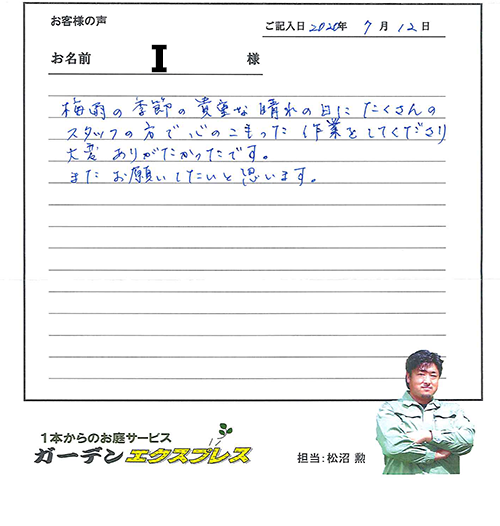 お客様の声
ご記入日 2020年 7月 12日
お名前 I 様
梅雨の季節の貴重な晴れの日に たくさんの
スタッフの方で心のこもった 作業をしてくださり
大変 ありがたかったです。
また お願いしたいと思います。
1本からのお庭サービス
ガーデンエクスプレス
担当:松沼 勲